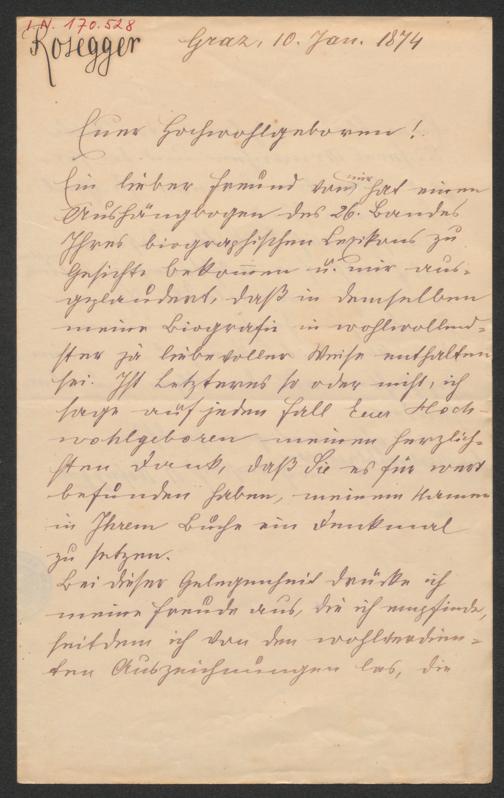 I.N. 170.528
Rosegger
Graz, 10. Jan. 1874
Euer Hochwohlgeboren!
Ein lieber Freund von mir hat einen
Aushängbogen des 26. Bandes
Ihres biographischen Lexikons zu
Gesichte bekommen u. mir aus-
geplaudert, daß in demselben
meine Biografie in wohlwollend-
ster ja liebevoller Weise enthalten
sei. Ist Letzteres so oder nicht, ich
sage auf jeden Fall Euer Hoch-
wohlgeboren meinen herzlich-
sten Dank, daß Sie es für wert
befunden haben, meinem Namen
in Ihrem Buche ein Denkmal
zu setzen.
Bei dieser Gelegenheit drücke ich
meine Freude aus, die ich empfinde,
seitdem ich von den wohlverdien-
ten Auszeichnungen las, die